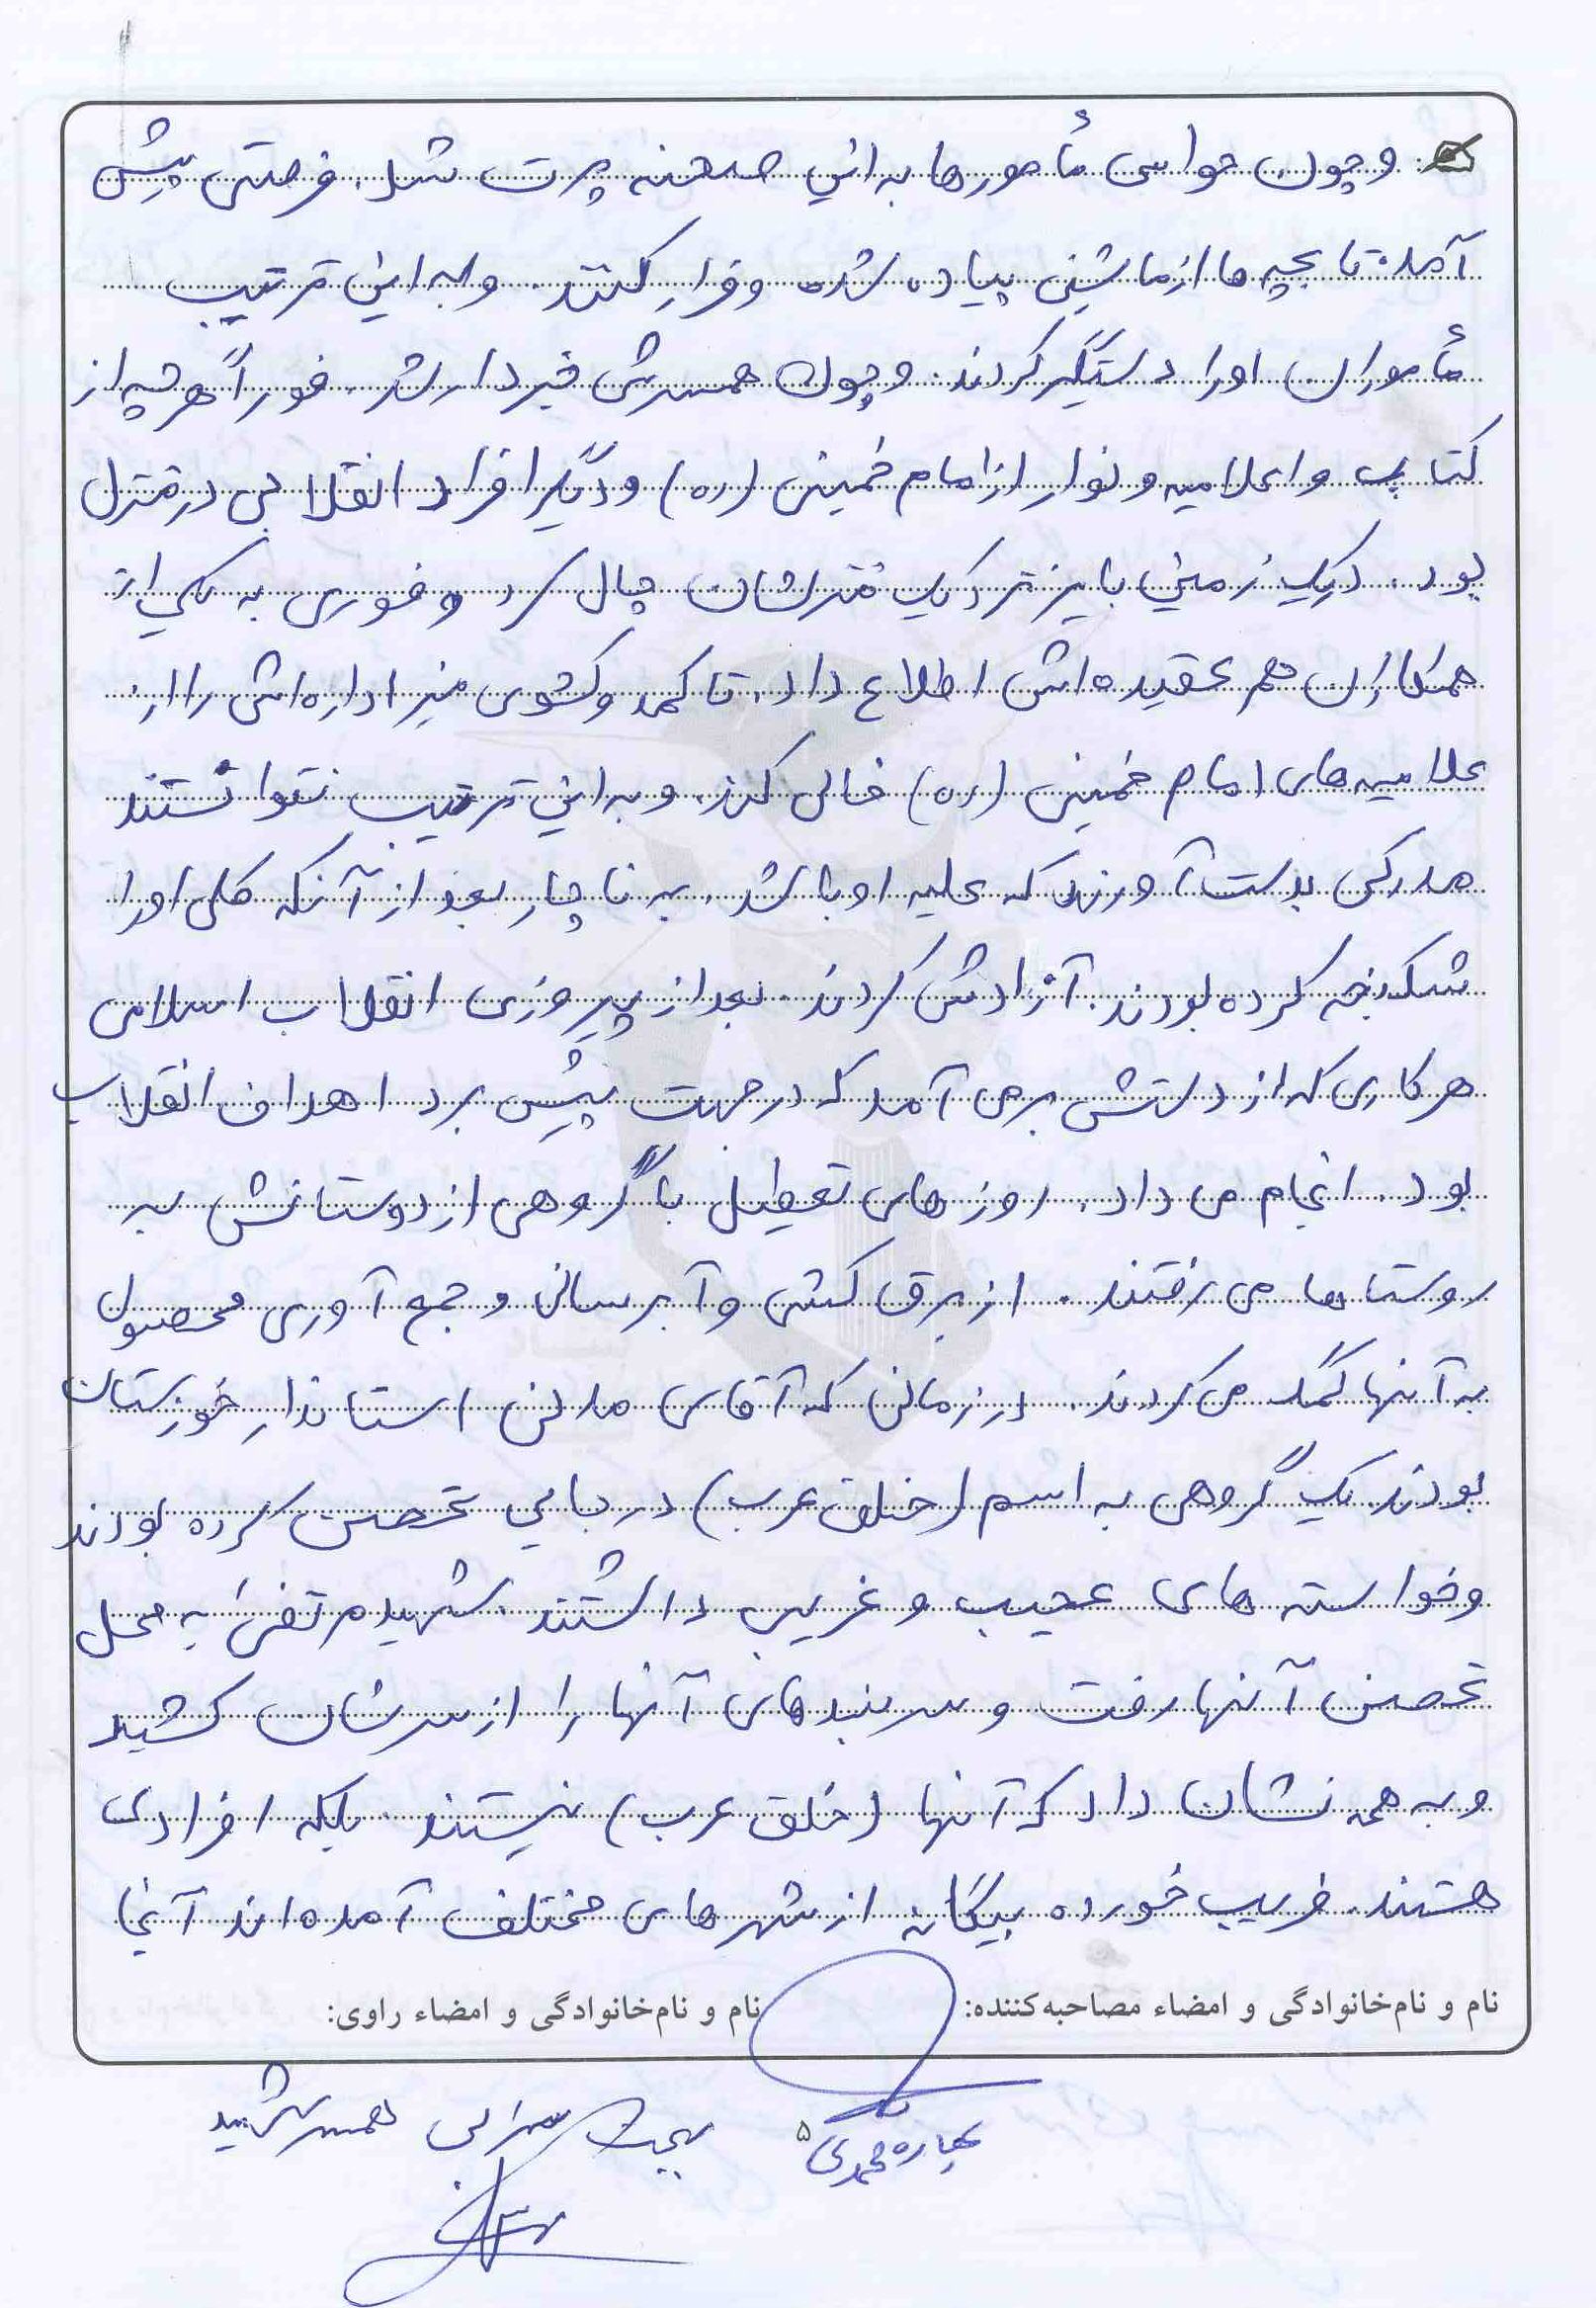 و چون حواس مأمورها به این صحنه پرت شد. فرصتی پیش
آمد. تا بچه ها از ماشین پیاده شده و فرار کنند. و به این ترتیب
مأموران او را دستگیر کردند. و چون همسرش خبردار شد. فوراً هر چه از
کتاب و اعلامیه و نوار از امام خمینی (ره) و دیگر افراد انقلابی در منزل
بود. در یک زمین بایر نزدیک منزلشان چال کرد و فوری به یکی از
همکاران هم عقیده اش اطلاع داد. تا کمد و کشوی میز اداره اش را از
علامیه های امام خمینی (ره) خالی کند. و به این ترتیب نتوانستند
مدرکی بدست آورند که علیه او باشد. به ناچار بعد از آنکه کلی او را
شکنجه کرده بودند. آزادش کردند. بعد از پیروزی انقلاب اسلامی
هر کاری که از دستش بر می آمد که در جهت پیش برد اهداف انقلاب
بود. انجام می داد. روزهای تعطیل با گروهی از دوستانش به
روستاها می رفتند. از برق کشی و آبرسانی و جمع آوری محصول
به آنها کمک می کردند. در زمانی که آقای مدنی استاندار خوزستان
بودند یک گروهی به اسم (خلق عرب) در جایی تحصن کرده بودند
و خواسته های عجیب و غریب داشتند. شهید مرتضی به محل
تحصن آنها رفت و سربندهای آنها را از سرشان کشید
و به همه نشان داد که آنها (خلق عرب) نیستند. بلکه افرادی
هستند. فریب خورده بیگانه از شهرهای مختلف آمده اند آنجا
نام و نام‌خانوادگی و امضاء مصاحبه‌کننده: نام و نام‌خانوادگی و امضاء راوی:
محمدی ۵ بهجت همسر شهید